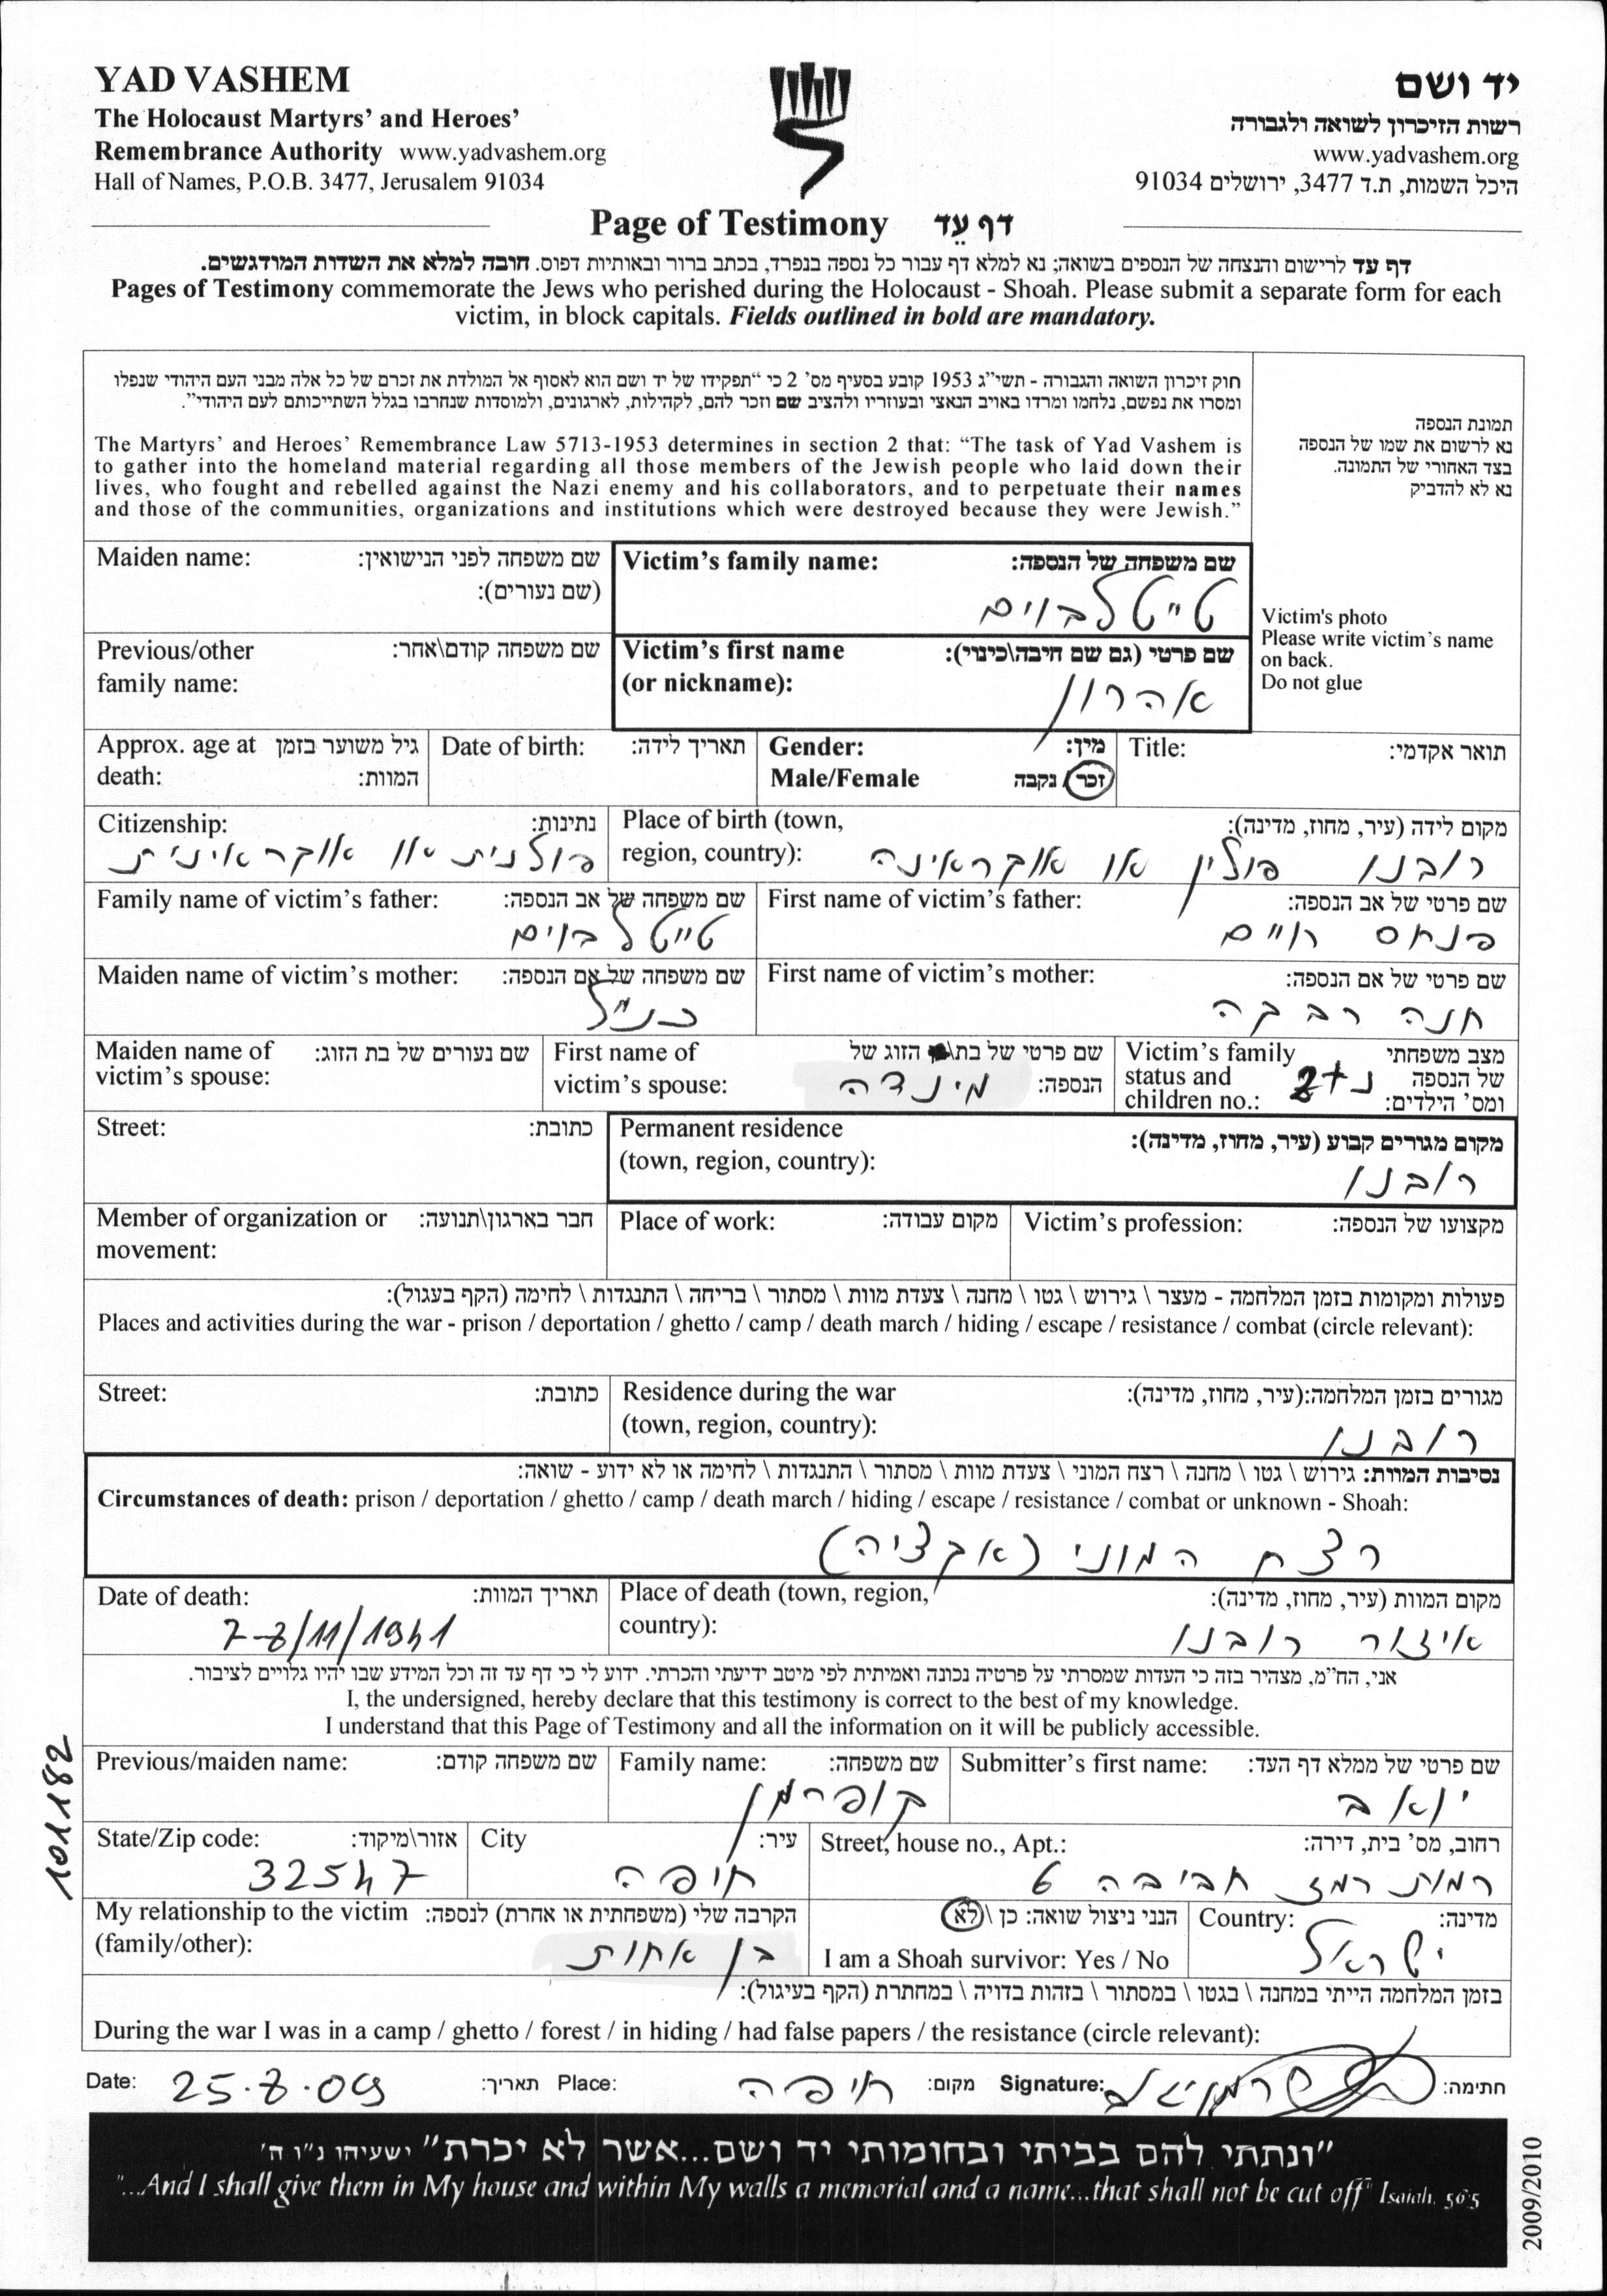 YAD VASHEM
The Holocaust Martyrs' and Heroes'
Remembrance Authority www.yadvashem.org
Hall of Names, P.O.B. 3477, Jerusalem 91034
יד ושם
רשות הזיכרון לשואה ולגבורה
www.yadvashem.org
היכל השמות, ת.ד 3477, ירושלים 91034
Page of Testimony דף עֵד
דף עד לרישום והנצחה של הנספים בשואה; נא למלא דף עבור כל נספה בנפרד, בכתב ברור ובאותיות דפוס. חובה למלא את השדות המודגשים.
Pages of Testimony commemorate the Jews who perished during the Holocaust - Shoah. Please submit a separate form for each
victim, in block capitals. Fields outlined in bold are mandatory.
חוק זיכרון השואה והגבורה - תשי"ג 1953 קובע בסעיף מס' 2 כי "תפקידו של יד ושם הוא לאסוף אל המולדת את זכרם של כל אלה מבני העם היהודי שנפלו
ומסרו את נפשם, נלחמו ומרדו באויב הנאצי ובעוזריו ולהציב שם וזכר להם, לקהילות, לארגונים, ולמוסדות שנחרבו בגלל השתייכותם לעם היהודי".
The Martyrs' and Heroes' Remembrance Law 5713-1953 determines in section 2 that: "The task of Yad Vashem is
to gather into the homeland material regarding all those members of the Jewish people who laid down their
lives, who fought and rebelled against the Nazi enemy and his collaborators, and to perpetuate their names
and those of the communities, organizations and institutions which were destroyed because they were Jewish."
תמונת הנספה
נא לרשום את שמו של הנספה
בצד האחורי של התמונה.
נא לא להדביק
Victim's photo
Please write victim's name
on back.
Do not glue
Maiden name: שם משפחה לפני הנישואין:
(שם נעורים):
Victim's family name: שם משפחה של הנספה:
טייטלבוים
Previous/other שם משפחה קודם\אחר:
family name:
Victim's first name שם פרטי (גם שם חיבה\כינוי):
(or nickname):
אהרון
Approx. age at גיל משוער בזמן
death: המוות:
Date of birth: תאריך לידה:
Gender: מין:
Male/Female זכר / נקבה
Title: תואר אקדמי:
Citizenship: נתינות:
פולנית או אוקראינית
Place of birth (town, מקום לידה (עיר, מחוז, מדינה):
region, country):
רובנו פולין או אוקראינה
Family name of victim's father: שם משפחה של אב הנספה:
טייטלבוים
First name of victim's father: שם פרטי של אב הנספה:
פנחס חיים
Maiden name of victim's mother: שם משפחה של אם הנספה:
כנ"ל
First name of victim's mother: שם פרטי של אם הנספה:
חנה רבקה
Maiden name of שם נעורים של בת הזוג:
victim's spouse:
First name of שם פרטי של בת\ הזוג של
victim's spouse: הנספה:
מינדה
Victim's family מצב משפחתי
status and של הנספה
children no.: ומס' הילדים:
נ+2
Street: כתובת:
Permanent residence מקום מגורים קבוע (עיר, מחוז, מדינה):
(town, region, country):
רובנו
Member of organization or חבר בארגון\תנועה:
movement:
Place of work: מקום עבודה:
Victim's profession: מקצועו של הנספה:
פעולות ומקומות בזמן המלחמה - מעצר \ גירוש \ גטו \ מחנה \ צעדת מוות \ מסתור \ בריחה \ התנגדות \ לחימה (הקף בעגול):
Places and activities during the war - prison / deportation / ghetto / camp / death march / hiding / escape / resistance / combat (circle relevant):
Street: כתובת:
Residence during the war מגורים בזמן המלחמה:(עיר, מחוז, מדינה):
(town, region, country):
רובנו
נסיבות המוות: גירוש \ גטו \ מחנה \ רצח המוני \ צעדת מוות \ מסתור \ התנגדות \ לחימה או לא ידוע - שואה:
Circumstances of death: prison / deportation / ghetto / camp / death march / hiding / escape / resistance / combat or unknown - Shoah:
רצח המוני (אקציה)
Date of death: תאריך המוות:
7-8/11/1941
Place of death (town, region, מקום המוות (עיר, מחוז, מדינה):
country):
איזור רובנו
אני, הח"מ, מצהיר בזה כי העדות שמסרתי על פרטיה נכונה ואמיתית לפי מיטב ידיעתי והכרתי. ידוע לי כי דף עד זה וכל המידע שבו יהיו גלויים לציבור.
I, the undersigned, hereby declare that this testimony is correct to the best of my knowledge.
I understand that this Page of Testimony and all the information on it will be publicly accessible.
Previous/maiden name: שם משפחה קודם:
Family name: שם משפחה:
קופרמן
Submitter's first name: שם פרטי של ממלא דף העד:
יואב
State/Zip code: אזור\מיקוד:
32547
City עיר:
חיפה
Street, house no., Apt.: רחוב, מס' בית, דירה:
רמות רמז חביבה 6
My relationship to the victim הקרבה שלי (משפחתית או אחרת) לנספה:
(family/other):
בן אחות
הנני ניצול שואה: כן \ לא
I am a Shoah survivor: Yes / No
Country: מדינה:
ישראל
בזמן המלחמה הייתי במחנה \ בגטו \ במסתור \ בזהות בדויה \ במחתרת (הקף בעיגול):
During the war I was in a camp / ghetto / forest / in hiding / had false papers / the resistance (circle relevant):
Date: 25.8.09 תאריך: Place: חיפה מקום: Signature: חתימה:
"ונתתי להם בביתי ובחומותי יד ושם...אשר לא יכרת" ישעיהו נ"ו ה'
"...And I shall give them in My house and within My walls a memorial and a name...that shall not be cut off" Isaiah, 56:5
101182
2009/2010